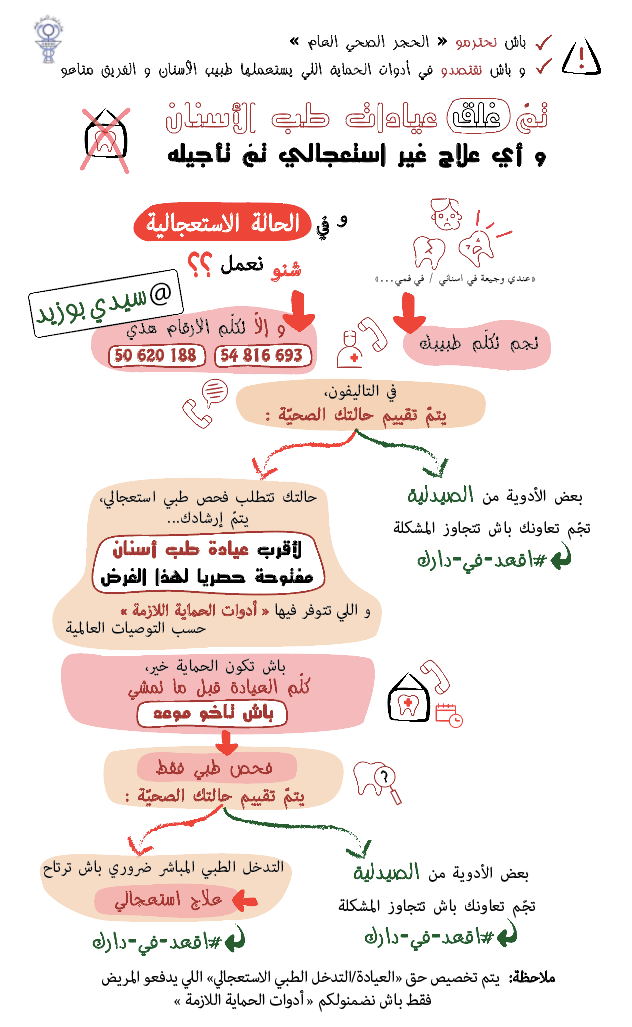 باش نحترمو « الحجر الصحي العام »
و باش نقتصدو في أدوات الحماية اللي يستعملها طبيب الأسنان و الفريق متاعو
تمّ غلق عيادات طب الأسنان
و أي علاج غير استعجالي تمّ تأجيله
و في الحالة الاستعجالية
شنو نعمل ؟؟
«عندي وجيعة في اسناني / في فمي...»
@سيدي بوزيد
نجم نكلّم طبيبك
و إلّا نكلّم الأرقام هذي
50 620 188
54 816 693
في التاليفون،
يتمّ تقييم حالتك الصحيّة :
بعض الأدوية من الصيدلية
تجّم تعاونك باش تتجاوز المشكلة
#اقعد-في-دارك
حالتك تتطلب فحص طبي استعجالي،
يتمّ إرشادك...
لأقرب عيادة طب أسنان
مفتوحة حصريا لهذا الغرض
و اللي تتوفر فيها « أدوات الحماية اللازمة »
حسب التوصيات العالمية
باش تكون الحماية خير،
كلّم العيادة قبل ما تمشي
باش تاخو موعد
فحص طبي فقط
يتمّ تقييم حالتك الصحيّة :
بعض الأدوية من الصيدلية
تجّم تعاونك باش تتجاوز المشكلة
#اقعد-في-دارك
التدخل الطبي المباشر ضروري باش ترتاح
علاج استعجالي
#اقعد-في-دارك
ملاحظة: يتم تخصيص حق «العيادة/التدخل الطبي الاستعجالي» اللي يدفعو المريض
فقط باش نضمنولكم « أدوات الحماية اللازمة »